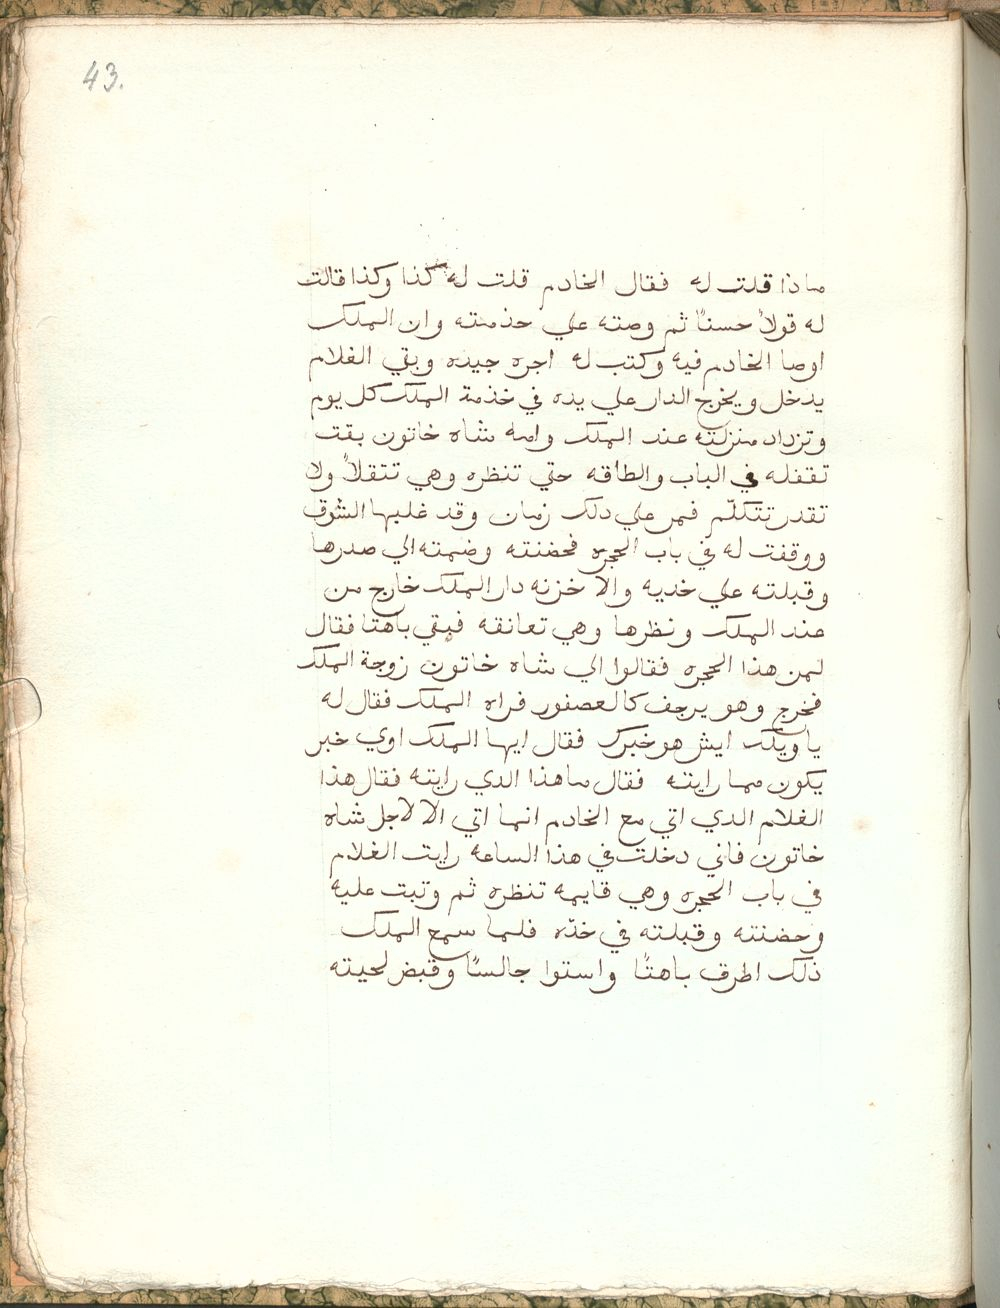 43.
ماذا قلت له فقال الخادم قلت له كذا وكذا قالت
له قولاً حسناً ثم وصته علي حذمته وان الملك
اوصا الخادم فيه وكتب له اجره جيده وبقي الغلام
يدخل ويخرج الدار علي يده في خذمة الملك كل يوم
وتزداد منزلته عند الملك وامه شاه خاتون بقت
تقفله في الباب والطاقه حتي تنظره وهي تتقلاً ولا
تقدر تتكلّم فمر علي دلك زمان وقد غلبها الشوق
ووقفت له في باب الحجره فحضنته وضمته الي صدرها
وقبلته علي خديه والا خزنه دار الملك خارج من
عند الملك ونظرها وهي تعانقه فبقي باهتا فقال
لمن هذا الحجره فقالوا الي شاه خاتون زوجة الملك
فخرج وهو يرجف كالعصفور فراه الملك فقال له
يا ويلك ايش هو خبرك فقال ايها الملك اوي خبر
يكون مما رايته فقال ما هذا الدي رايته فقال هذا
الغلام الدي اتي مع الخادم انما اتي الا لاجل شاه
خاتون فاني دخلت في هذا الساعه رايت الغلام
في باب الحجره وهي قايمه تنظره ثم وتبت عليه
وحضنته وقبلته في خدّه فلما سمع الملك
ذلك اطرق باهتاً واستوا جالساً وقبض لحيته